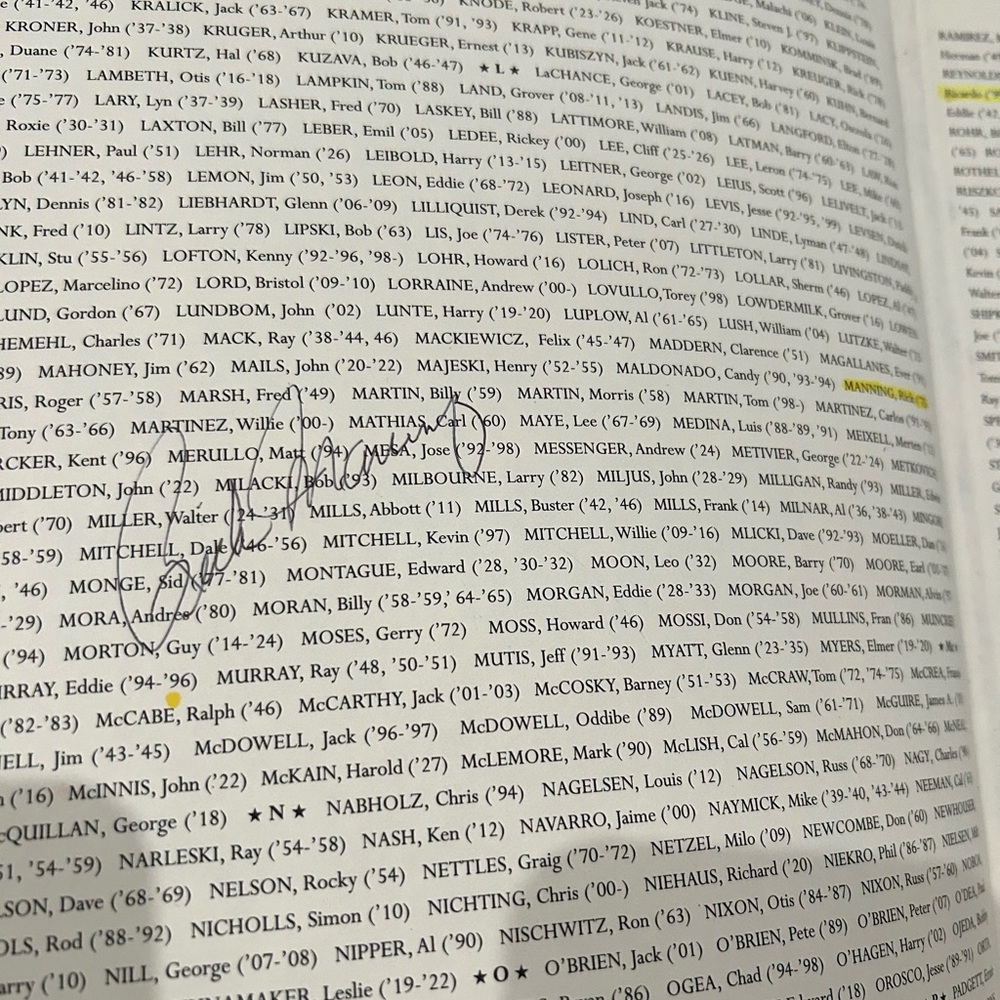 ('41-'42, '46) KRALICK, Jack ('63-'67) KRAMER, Tom ('91, '93) KNODE, Robert ('23-'26) KOESTNER, Elmer ('10) KLINE, Steven J. ('97) KLIPPSTEIN,
KRONER, John ('37-'38) KRUGER, Arthur ('10) KRUEGER, Ernest ('13) KRAPP, Gene ('11-'12) KRAUSE, Harry ('12) KOMMINSK, Brad
, Duane ('74-'81) KURTZ, Hal ('68) KUZAVA, Bob ('46-'47) ★ L ★ KUBISZYN, Jack ('61-'62) KUENN, Harvey ('60) KREUGER, Rick ('78)
('71-'73) LAMBETH, Otis ('16-'18) LAMPKIN, Tom ('88) LAND, Grover ('08-'11, '13) LaCHANCE, George ('01) LACEY, Bob ('81) KUHN, Bernard
e ('75-'77) LARY, Lyn ('37-'39) LASHER, Fred ('70) LASKEY, Bill ('88) LANDIS, Jim ('66) LANGFORD, Elton
Roxie ('30-'31) LAXTON, Bill ('77) LEBER, Emil ('05) LEDEE, Rickey ('00) LATTIMORE, William ('08) LATMAN, Barry ('60-'63)
) LEHNER, Paul ('51) LEHR, Norman ('26) LEIBOLD, Harry ('13-'15) LEE, Cliff ('25-'26) LEE, Leron ('74-'75) LEE, Mike
Bob ('41-'42, '46-'58) LEMON, Jim ('50, '53) LEON, Eddie ('68-'72) LEITNER, George ('02) LEIUS, Scott ('96) LELIVELT, Jack
LYN, Dennis ('81-'82) LIEBHARDT, Glenn ('06-'09) LILLIQUIST, Derek ('92-'94) LEONARD, Joseph ('16) LEVIS, Jesse ('92-'95, '99) LEVSEN,
NK, Fred ('10) LINTZ, Larry ('78) LIPSKI, Bob ('63) LIS, Joe ('74-'76) LIND, Carl ('27-'30) LINDE, Lyman ('47-'48)
KLIN, Stu ('55-'56) LOFTON, Kenny ('92-'96, '98-) LOHR, Howard ('16) LISTER, Peter ('07) LITTLETON, Larry ('81) LIVINGSTON,
LOPEZ, Marcelino ('72) LORD, Bristol ('09-'10) LORRAINE, Andrew ('00-) LOLICH, Ron ('72-'73) LOLLAR, Sherm ('46) LOPEZ, Al
LUND, Gordon ('67) LUNDBOM, John ('02) LUNTE, Harry ('19-'20) LOVULLO, Torey ('98) LOWDERMILK, Grover ('16)
HEMEHL, Charles ('71) MACK, Ray ('38-'44, 46) MACKIEWICZ, Felix ('45-'47) LUPLOW, Al ('61-'65) LUSH, William ('04) LUTZKE, Walter
89) MAHONEY, Jim ('62) MAILS, John ('20-'22) MAJESKI, Henry ('52-'55) MADDERN, Clarence ('51) MAGALLANES, Ever
RIS, Roger ('57-'58) MARSH, Fred '49) MARTIN, Billy ('59) MALDONADO, Candy ('90, '93-'94) MANNING, Rick
Tony ('63-'66) MARTINEZ, Willie ('00-) MATHIAS, Carl ('60) MARTIN, Morris ('58) MARTIN, Tom ('98-) MARTINEZ, Carlos
RCKER, Kent ('96) MERULLO, Matt ('94) MESA, Jose ('92-'98) MAYE, Lee ('67-'69) MEDINA, Luis ('88-'89, '91) MEIXELL, Merten
MIDDLETON, John ('22) MILACKI, Bob ('93) MILBOURNE, Larry ('82) MESSENGER, Andrew ('24) METIVIER, George ('22-'24) METKOVICH
bert ('70) MILLER, Walter ('24-'31) MILLS, Abbott ('11) MILJUS, John ('28-'29) MILLIGAN, Randy ('93) MILLER,
58-'59) MITCHELL, Dale ('46-'56) MITCHELL, Kevin ('97) MILLS, Buster ('42, '46) MILLS, Frank ('14) MILNAR, Al ('36, '38-'43)
, '46) MONGE, Sid ('77-'81) MONTAGUE, Edward ('28, '30-'32) MITCHELL, Willie ('09-'16) MLICKI, Dave ('92-'93) MOELLER,
-'29) MORA, Andres ('80) MORAN, Billy ('58-'59,' 64-'65) MOON, Leo ('32) MOORE, Barry ('70) MOORE, Earl
('94) MORTON, Guy ('14-'24) MOSES, Gerry ('72) MORGAN, Eddie ('28-'33) MORGAN, Joe ('60-'61) MORMAN,
RRAY, Eddie ('94-'96) MURRAY, Ray ('48, '50-'51) MOSS, Howard ('46) MOSSI, Don ('54-'58) MULLINS, Fran ('86)
('82-'83) McCABE, Ralph ('46) McCARTHY, Jack ('01-'03) MUTIS, Jeff ('91-'93) MYATT, Glenn ('23-'35) MYERS, Elmer ('19-'20)
NELL, Jim ('43-'45) McDOWELL, Jack ('96-'97) McCOSKY, Barney ('51-'53) McCRAW, Tom ('72, '74-'75) McCREA,
n ('16) McINNIS, John ('22) McKAIN, Harold ('27) McDOWELL, Oddibe ('89) McDOWELL, Sam ('61-'71) McGUIRE, James A.
cQUILLAN, George ('18) ★ N ★ NABHOLZ, Chris ('94) McLEMORE, Mark ('90) McLISH, Cal ('56-'59) McMAHON, Don ('64-'66)
51, '54-'59) NARLESKI, Ray ('54-'58) NASH, Ken ('12) NAGELSEN, Louis ('12) NAGELSON, Russ ('68-'70) NAGY, Charles
LSON, Dave ('68-'69) NELSON, Rocky ('54) NETTLES, Graig ('70-'72) NAVARRO, Jaime ('00) NAYMICK, Mike ('39-'40, '43-'44) NEEMAN, Cal
OLS, Rod ('88-'92) NICHOLLS, Simon ('10) NICHTING, Chris ('00-) NETZEL, Milo ('09) NEWCOMBE, Don ('60) NEWHOUSER
arry ('10) NILL, George ('07-'08) NIPPER, Al ('90) NISCHWITZ, Ron ('63) NIEHAUS, Richard ('20) NIEKRO, Phil ('86-'87) NIELSEN,
NAMAKER, Leslie ('19-'22) ★ O ★ O'BRIEN, Jack ('01) NIXON, Otis ('84-'87) NIXON, Russ ('57-'60)
('86) O'BRIEN, Pete ('89) O'BRIEN, Peter ('07) O'DEA,
OGEA, Chad ('94-'98) O'HAGEN, Harry ('02) OJEDA,
('18) OROSCO, Jesse ('89-'91)
PADGETT,
RAMIREZ,
REYNOLDS
Ricardo
Eddie ('42
('65)
ROTHEL
'45)
Frank
('04)
Kevin
Walter
SHIPK
Joe
SMIT
Ray